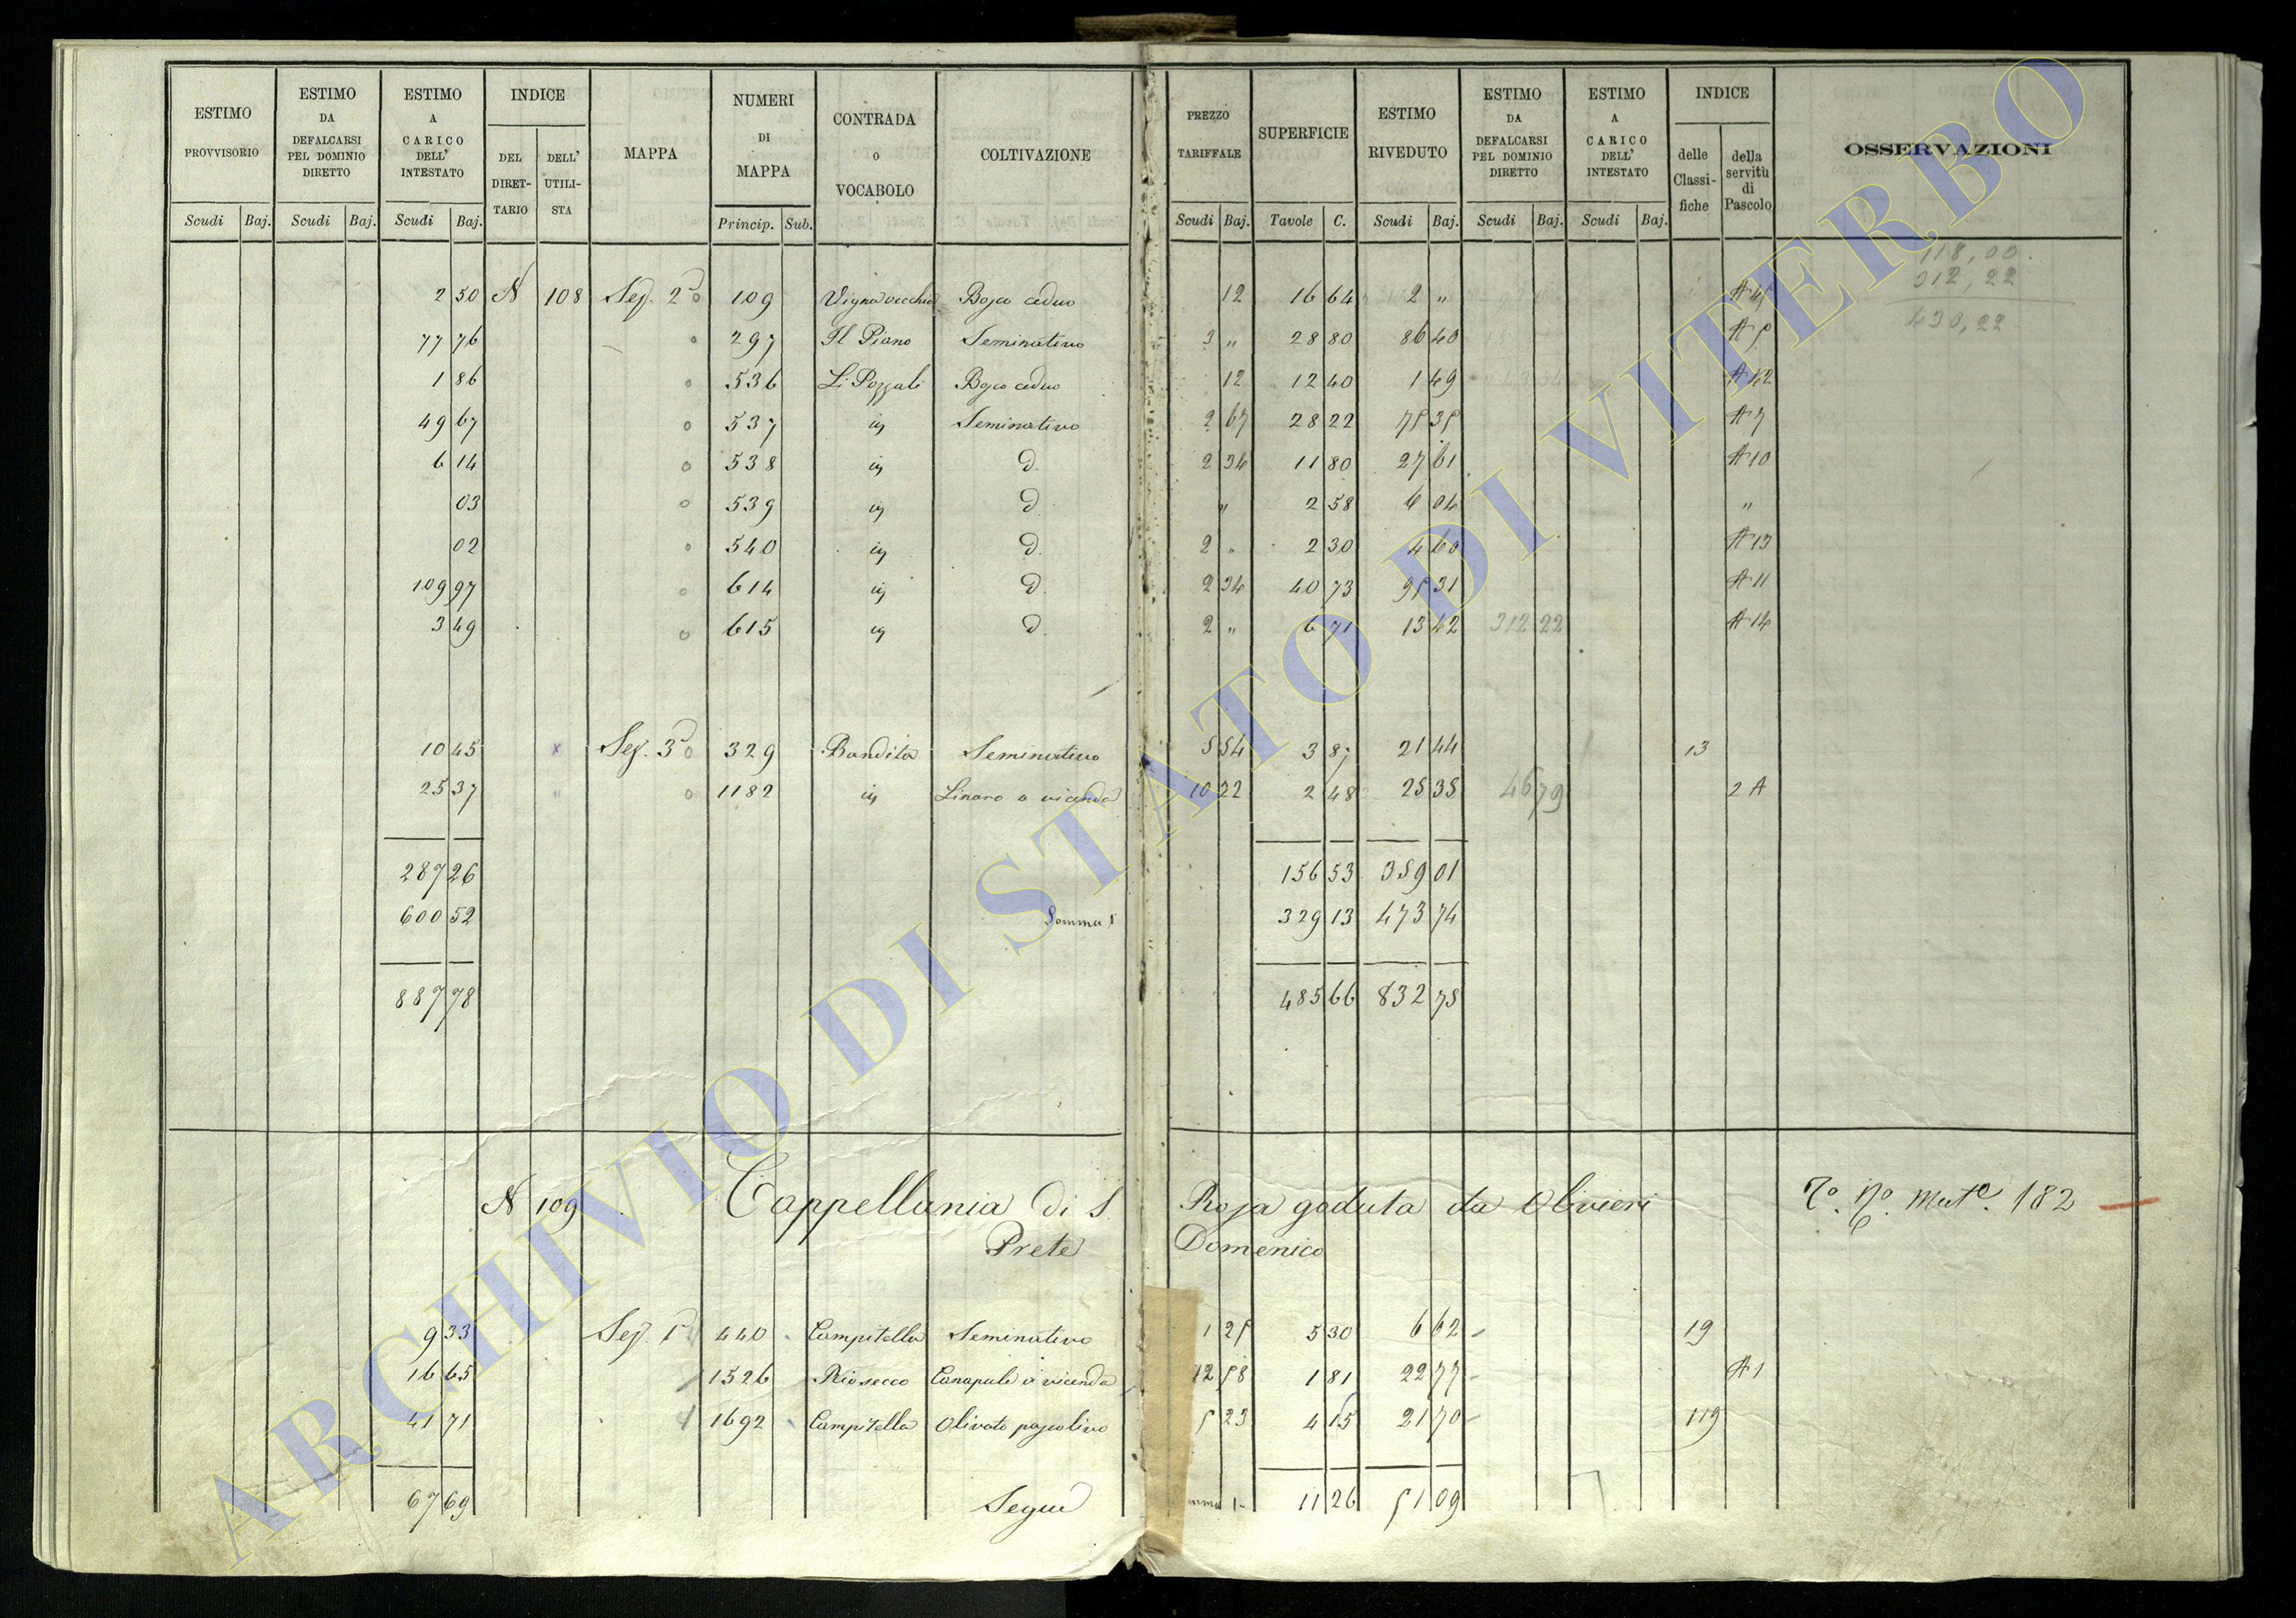 ESTIMO PROVVISORIO | ESTIMO DA DEFALCARSI PEL DOMINIO DIRETTO | ESTIMO A CARICO DELL' INTESTATO | INDICE DEL DIRET-TARIO | DELL' UTILI-STA | MAPPA | NUMERI DI MAPPA | CONTRADA O VOCABOLO | COLTIVAZIONE | PREZZO TARIFFALE | SUPERFICIE | ESTIMO RIVEDUTO | ESTIMO DA DEFALCARSI PEL DOMINIO DIRETTO | ESTIMO A CARICO DELL' INTESTATO | INDICE delle Classi-fiche | della servitù di Pascolo | OSSERVAZIONI
Scudi Baj. | Scudi Baj. | Scudi Baj. | Princip. Sub. | Scudi Baj. | Tavole C. | Scudi Baj. | Scudi Baj. | Scudi Baj.
118,00
312,22
430,22
2 50 N 108 Sez. 2a 109 Vigna vecchia Bosco ceduo 12 16 64 2 „ A 45
77 76 297 Il Piano Seminativo 3 „ 28 80 86 40 A 5
1 86 536 Li Pozzali Bosco ceduo 12 12 40 1 49 A 42
49 67 537 id Seminativo 2 67 28 22 75 35 A 7
6 14 538 id d. 2 34 11 80 27 61 A 10
03 539 id d. „ 2 58 6 04 „
02 540 id d. 2 „ 2 30 4 60 A 13
109 97 614 id d. 2 34 40 73 95 31 A 11
3 49 615 id d. 2 „ 6 71 13 42 312 22 A 14
10 45 x Sez. 3a 329 Bandita Seminativo 5 54 3 87 21 44 13
25 37 „ 1182 id Linaro a vicenda 10 22 2 48 25 35 46 79 2 A
287 26 156 53 359 01
600 52 Somma S 329 13 473 74
887 78 485 66 832 75
N 109 Cappellania di S. Rosa goduta da Olivieri
Prete Domenico
Mute. 182
9 33 Sez. 1a 440 Campitella Seminativo 1 25 5 30 6 62 19
16 65 1526 Riosecco Canapule a vicenda 12 58 1 81 22 77 A 1
41 71 1692 Campitella Olivato pascolivo 5 23 4 15 21 70 119
67 69 Segue 11 26 51 09
ARCHIVIO DI STATO DI VITERBO